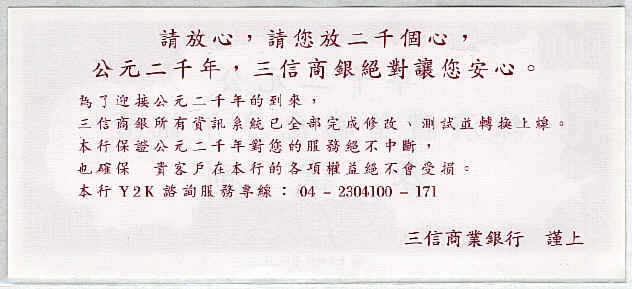 請放心，請您放二千個心，
公元二千年，三信商銀絕對讓您安心。
為了迎接公元二千年的到來，
三信商銀所有資訊系統已全部完成修改、測試並轉換上線。
本行保證公元二千年對您的服務絕不中斷，
也確保　貴客戶在本行的各項權益絕不會受損。
本行Y2K諮詢服務專線：04－2304100－171
三信商業銀行　謹上